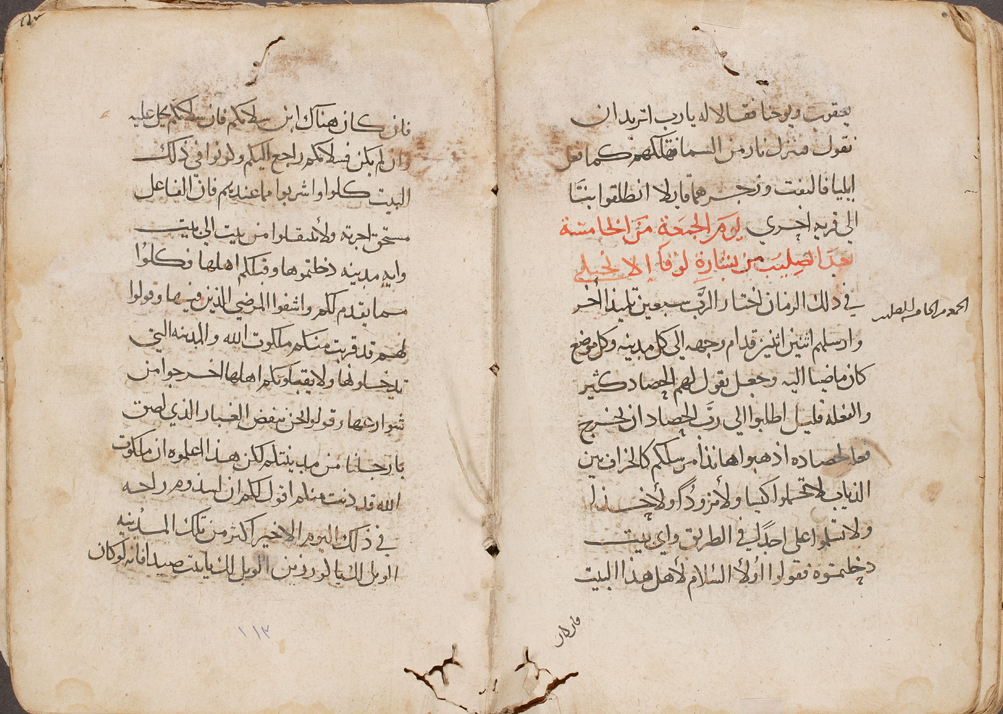 يعقوب ويوحنا فقالا له يارب اتريد ان
نقول فتنزل نار من السما فتهلكهم كما فعل
ايليا فالتفت وزجرهما قايلا انطلقوا بنا
الي قريه اخري يوم الجمعة من الخامسة
بعد الصليب من بشارة لوقا الانجيلي
في ذلك الزمان اختار الرب سبعين تلميذا اخر
وارسلهم اثنين اثنين قدام وجهه الي كل مدينه وكل موضع
كان ماضيا اليه وجعل يقول لهم الحصاد كثير
والفعله قليل اطلبوا الي رب الحصاد ان يخرج
فعله لحصاده اذهبوا هانذا مرسلكم كالخراف بين
الذياب لا تحملوا كيسا ولا مزودا ولا حذا
ولا تسلموا علي احد في الطريق واي بيت
دخلتموه فقولوا اولا السلام لاهل هذا البيت
فان كان
فان كان هناك ابن سلامكم فان سلامكم يحل عليه
وان لم يكن فسلامكم راجع اليكم وكونوا في ذلك
البيت كلوا واشربوا مما عندهم فان الفاعل
مستحق اجرته ولا تنتقلوا من بيت الي بيت
وايه مدينه دخلتموها وقبلكم اهلها فكلوا
مما يقدم لكم واشفوا المرضي الذين فيها وقولوا
لهم قد قربت منكم ملكوت الله والمدينه التي
تدخلونها ولا يقبلونكم اهلها اخرجوا من
شوارعها وقولوا نحن ننفض الغبار الذي لصق
بارجلنا من مدينتكم لكن هذا اعلموه ان ملكوت
الله قد دنت منكم اقول لكم ان لسدوم راحه
في ذلك اليوم الاخير اكثر من تلك المدينه
الويل لك يا كورزين الويل لك يا بيت صيدا فانه لو كان
١١٣